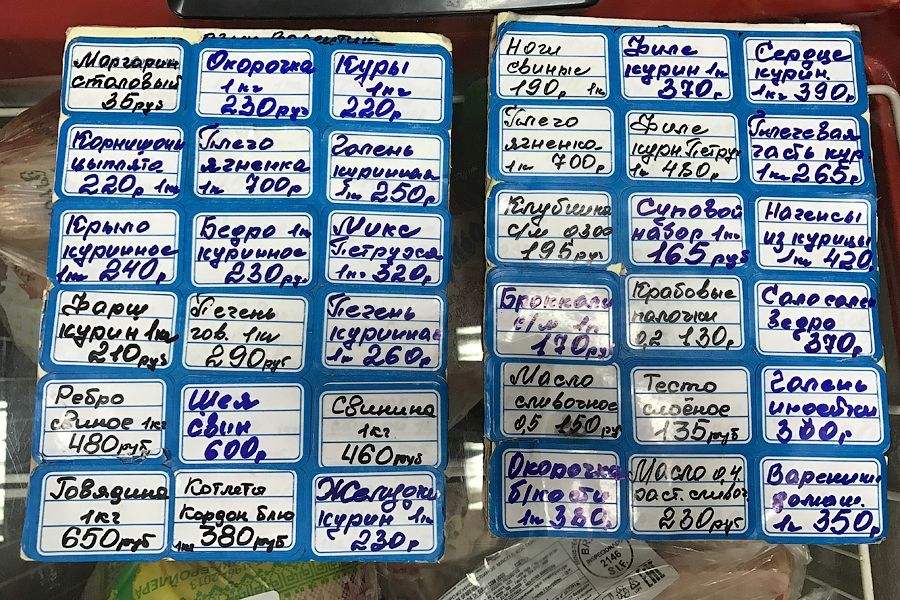 Маргарин
столовый
35руб
Окорочка
1кг
230руб
Куры
1кг
220р
Корнишоны
цыплята
220р 1кг
Плечо
ягненка
1кг 700р
Голень
куринная
1кг 250р
Крыло
куринное
1кг 240р
Бедро 1кг
куринное
230руб
Микс
Петруха
1кг 320р
Фарш
курин 1кг
210руб
Печень
гов. 1кг
290руб
Печень
куринная
1к 260р
Ребро
свиное 1кг
480руб
Шея
Свин
600р
Свинина
1кг
460руб
Говядина
1кг
650руб
Котлета
Кордон блю
1кг 380руб
Желудочки
курин 1кг
230р
Ноги
свиные
190р 1кг
Филе
курин 1кг
370р
Сердце
курин.
1кг 390р
Плечо
ягненка
1к 700р
Филе
курн. Петрух
1к 480р
Плечевая
часть кур
1кг 265р
Клубника
с/м 0300
195руб
Суповой
набор 1кг
165руб
Нагенсы
из курицы
1кг 420р
Брокколи
с/м 1к
170руб
Крабовые
палочки
0,2 130р
Сало солен
Ведро
370р
Масло
сливочное
0,5 150руб
Тесто
слоёное
135руб
Голень
индейки
300р
Окорочка
б/кости
1к 380р
Масло 0,4
раст. сливоч
230руб
Вареники
домаш.
1к 350р
2146